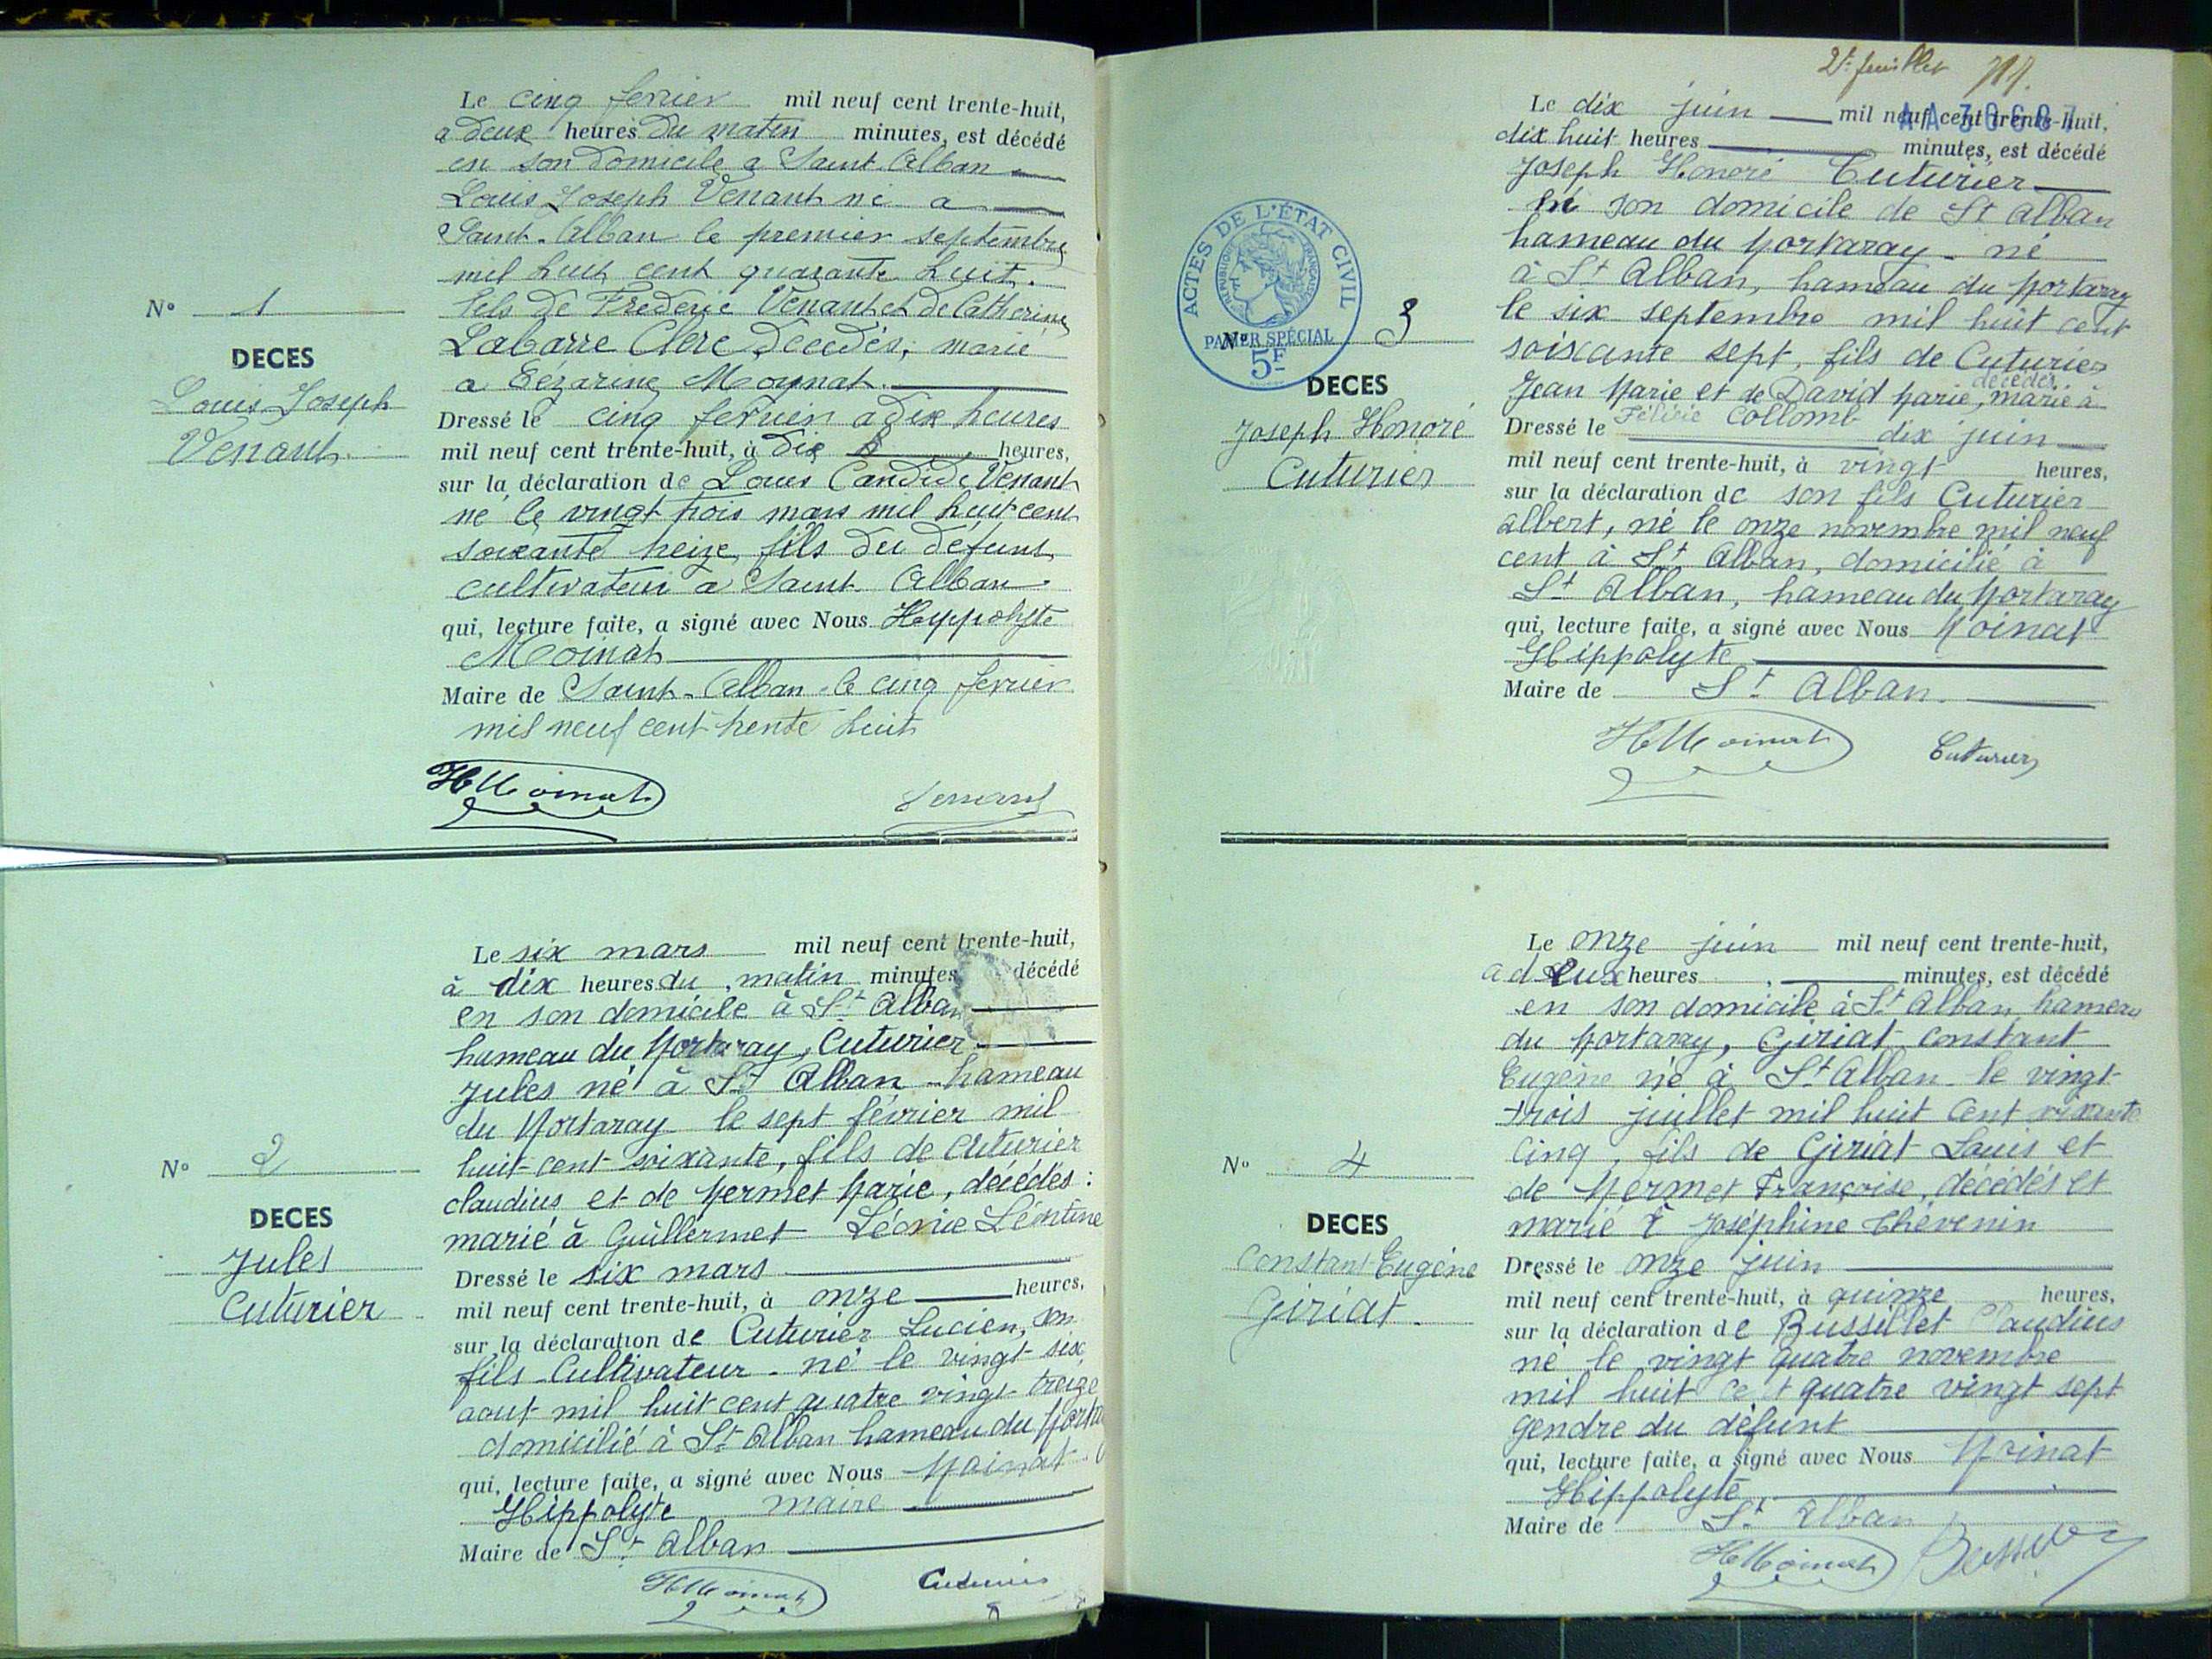 Le cinq fevrier mil neuf cent trente-huit,
a deux heures du matin minutes, est décédé
en son domicile a Saint-Alban
Louis Joseph Venant né a
Saint-Alban le premier septembre
mil huit cent quarante huit.
fils de Frederic Venant et de Catherine
Labarre Clere decedés, marié
a Cézarine Moynat.
Nº 1
DECES
Louis Joseph
Venant
Dressé le cinq fevrier a dix heures
mil neuf cent trente-huit, à dix heures,
sur la déclaration de Louis Candide Venant
né le vingt trois mars mil huit cent
soixante treize, fils du défunt,
cultivateur a Saint-Alban
qui, lecture faite, a signé avec Nous Hyppolyte
Moinat
Maire de Saint-Alban le cinq fevrier
mil neuf cent trente huit
HMoinat Venant
Le six mars mil neuf cent trente-huit,
à dix heures du matin minutes décédé
en son domicile à St Alban
hameau du Mortaray, Cuturier
Jules né à St Alban hameau
du Mortaray le sept février mil
huit cent soixante, fils de Cuturier
claudius et de Mermet Marie, décédés :
marié à Guillermet Léonie Léontine
Nº 2
DECES
Jules
Cuturier
Dressé le six mars
mil neuf cent trente-huit, à onze heures,
sur la déclaration de Cuturier Lucien, son
fils Cultivateur né le vingt six
aout mil huit cent quatre vingt treize
domicilié à St Alban hameau du Morta
qui, lecture faite, a signé avec Nous Moinat
Hippolyte maire
Maire de St Alban
HMoinat Cuturier
2e feuillet
AA30687
Le dix juin mil neuf cent trente-huit,
dix huit heures minutes, est décédé
Joseph Honoré Cuturier
en son domicile de St Alban
hameau du Mortaray né
à St Alban, hameau du Mortaray
le six septembre mil huit cent
soixante sept, fils de Cuturier
Jean Marie et de David Marie, décédés, marié à
Félicie Collomb
ACTES DE L'ÉTAT CIVIL
RÉPUBLIQUE FRANÇAISE
PAPIER SPÉCIAL
5F
Nº 3
DECES
Joseph Honoré
Cuturier
Dressé le dix juin
mil neuf cent trente-huit, à vingt heures,
sur la déclaration de son fils Cuturier
albert, né le onze novembre mil neuf
cent à St Alban, domicilié à
St Alban, hameau du Mortaray
qui, lecture faite, a signé avec Nous Moinat
Hippolyte
Maire de St Alban.
HMoinat Cuturier
Le onze juin mil neuf cent trente-huit,
a deux heures minutes, est décédé
en son domicile à St Alban hameau
du Mortaray, Giriat constant
Eugène né à St Alban le vingt
trois juillet mil huit cent soixante
cinq, fils de Giriat Louis et
de Mermet Françoise, décédés et
marié à Joséphine Thévenin
Nº 4
DECES
Constant Eugène
Giriat.
Dressé le onze juin
mil neuf cent trente-huit, à quinze heures,
sur la déclaration de Bussillet Claudius
né le vingt quatre novembre
mil huit cent quatre vingt sept
gendre du défunt
qui, lecture faite, a signé avec Nous Moinat
Hippolyte
Maire de St Alban
HMoinat